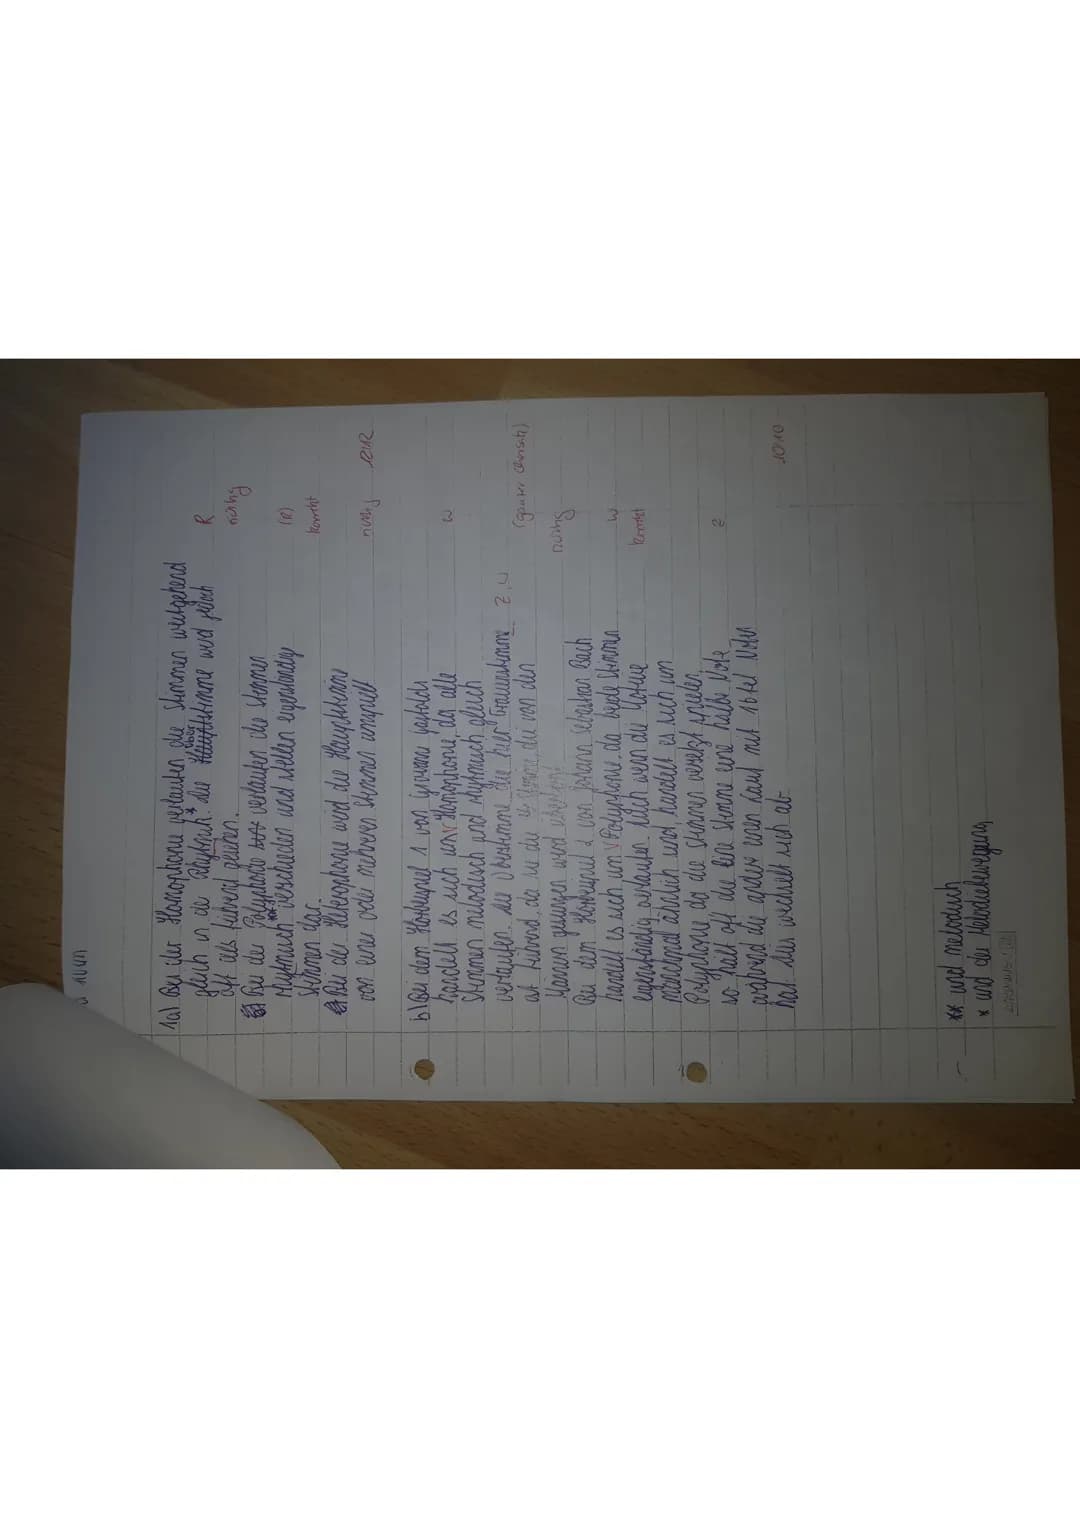 1a) Bei der Homophonie verlaufen die Stimmen weitgehend
gleich in der Rhythmik.* Die Hauptstimme wird jedoch R
Ober
oft als führend gesehen. richtig
Bei der Polyphonie verlaufen die Stimmen
rhythmisch ** verschieden und stellen eigenständig (R)
Stimmen dar. korrekt
Bei der Heterophonie wird die Hauptstimme
von einer oder mehreren Stimmen umspielt richtig 12/12
b) Bei dem Hörbeispiel 1 von
handelt es sich um V Homophonie, da alle W
Stimmen melodisch und rhythmisch gleich
verlaufen. Die Oberstimme die hier Frauenstimme Z, W
ist führend, da sie die Stimme die von den (ganzer Chorsatz)
Männern gesungen wird richtig
Bei dem Hörbeispiel 2 von Johann Sebastian Bach
handelt es sich um V Polyphonie, da beide Stimmen W
eigenständig verlaufen. Auch wenn die Motive korrekt
manchmal ähnlich sind, handelt es sich um
Polyphonie da die Stimmen versetzt spielen,
so hält oft die eine Stimme eine halbe Note Z
während die andere einen Lauf mit 16tel Noten
hat. Dies wechselt sich ab. 10/10
** und melodisch
* und der Melodiebewegung